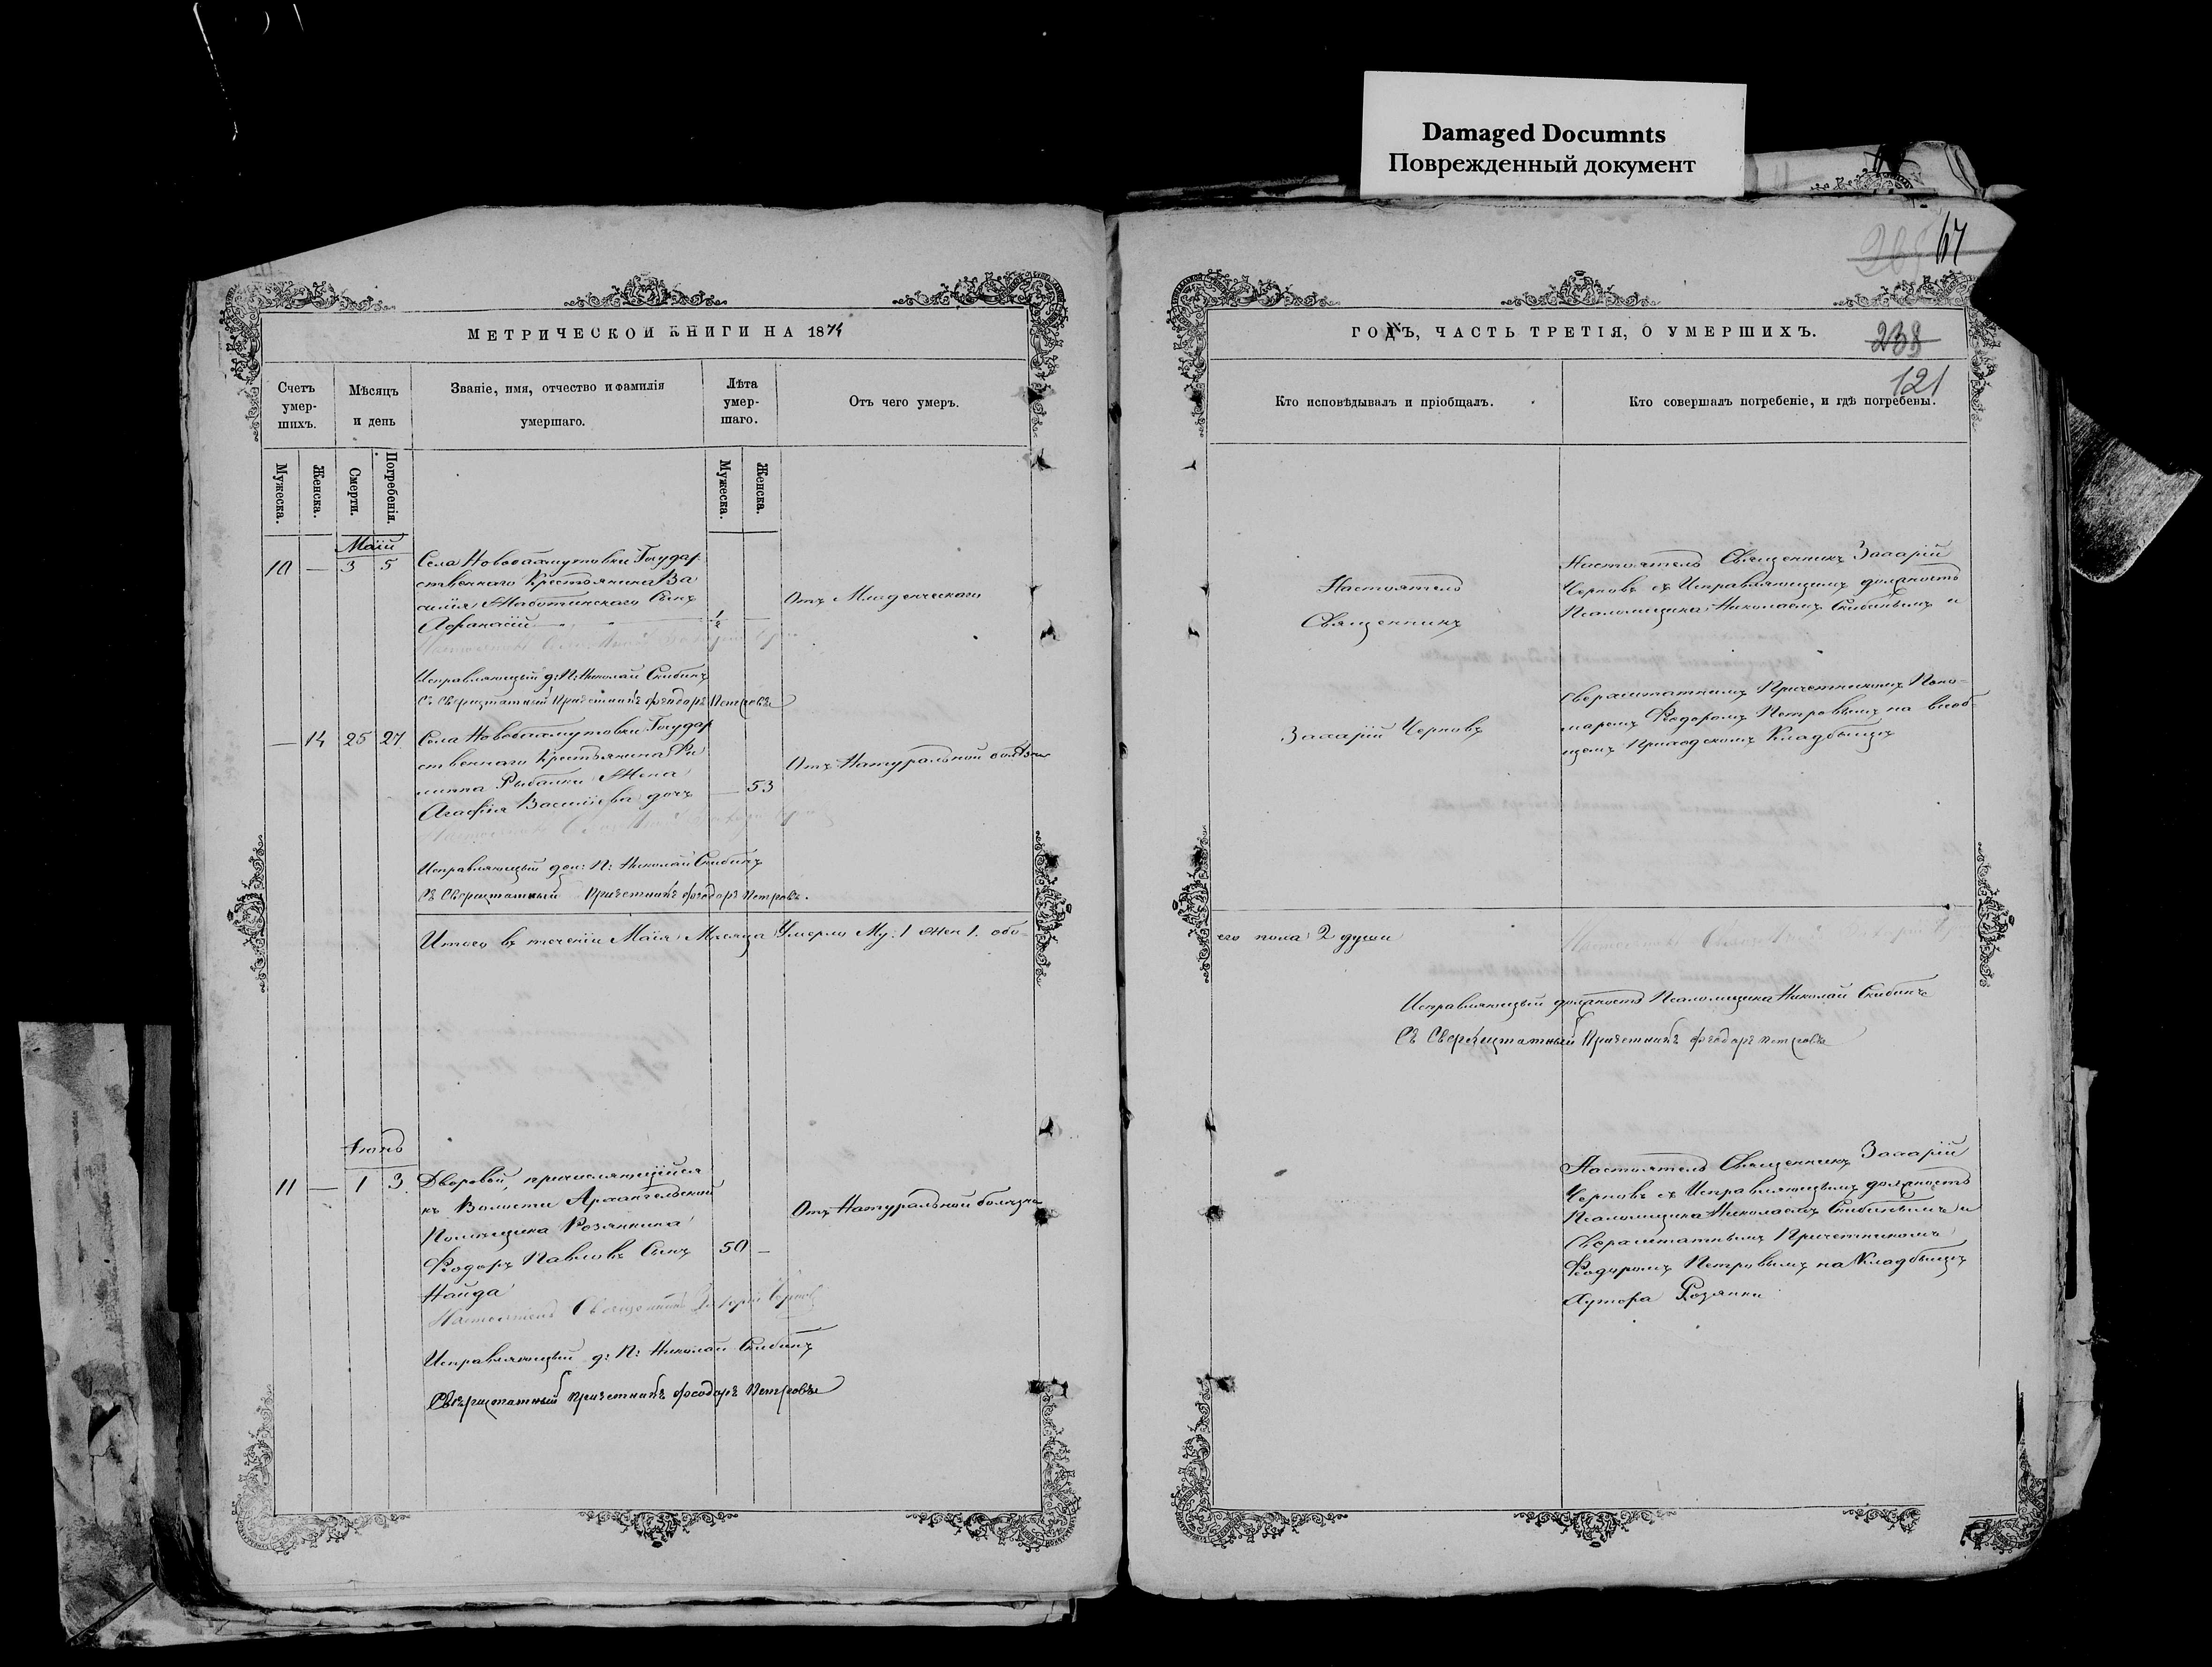 Damaged Documnts
Поврежденный документ
64
МЕТРИЧЕСКОЙ КНИГИ НА 1874
Счетъ умер-шихъ.
Мѣсяцъ и день
Званіе, имя, отчество и фамилія умершаго.
Лѣта умер-шаго.
Отъ чего умеръ.
Мужеска.
Женска.
Смерти.
Погребенія.
Мужеска.
Женска.
Маій
10 — 3 5
Села Новобахмутовки Государ
ственнаго Крестьянина Ва
силія Сынъ
Афанасій ½ —
Отъ Младенческаго
Исправляющій д: П: Николай Скибинъ
Сверхштатный Причетникъ Феодоръ Петровъ
— 14 25 27
Села Новобахмутовки Государ
ственнаго Крестьянина Фи
липпа Рыбалки Жена
Агафія Васильева дочь — 53
Отъ Натуральной болѣзни
Исправляющій дол: П: Николай Скибинъ
Сверхштатный Причетникъ Феодоръ Петровъ.
Итого въ теченіи Маія Мѣсяца Умерло Му: 1 Жен 1. обо-
Іюнь
11 — 1 3
Дворовой, причисляющійся
къ Волости Архангельской
Помѣщика Розянкина
Феодоръ Павловъ Сынъ 50 —
Найда
Отъ Натуральной болѣзни
Настоятель Священникъ Захарій Черновъ
Исправляющій д: П: Николай Скибинъ
Сверхштатный Причетникъ Феодоръ Петровъ
ГОДЪ, ЧАСТЬ ТРЕТІЯ, О УМЕРШИХЪ.
238
121
Кто исповѣдывалъ и пріобщалъ.
Кто совершалъ погребеніе, и гдѣ погребены.
Настоятель
Священникъ
Захарій Черновъ
Настоятель Священникъ Захарій
Черновъ съ Исправляющимъ должность
Псаломщика Николаемъ Скибинымъ и
Сверхштатнымъ Причетникомъ Поно-
маремъ Феодоромъ Петровымъ на всеоб-
щемъ Приходскомъ Кладбищѣ
его пола 2 души
Исправляющій должность Псаломщика Николай Скибинъ
Сверхштатный Причетникъ Феодоръ Петровъ
Настоятель Священникъ Захарій
Черновъ съ Исправляющимъ должность
Псаломщика Николаемъ Скибинымъ и
Сверхштатнымъ Причетникомъ
Феодоромъ Петровымъ на Кладбищѣ
Хутора Розянки